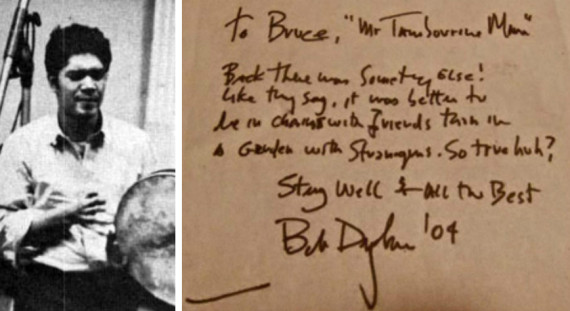 to Bruce, "Mr Tambourine Man"
Back there was Something Else!
like they say, it was better to
be in chains with friends than in
a Garden with Strangers. So true huh?
Stay Well & All the Best
Bob Dylan '04